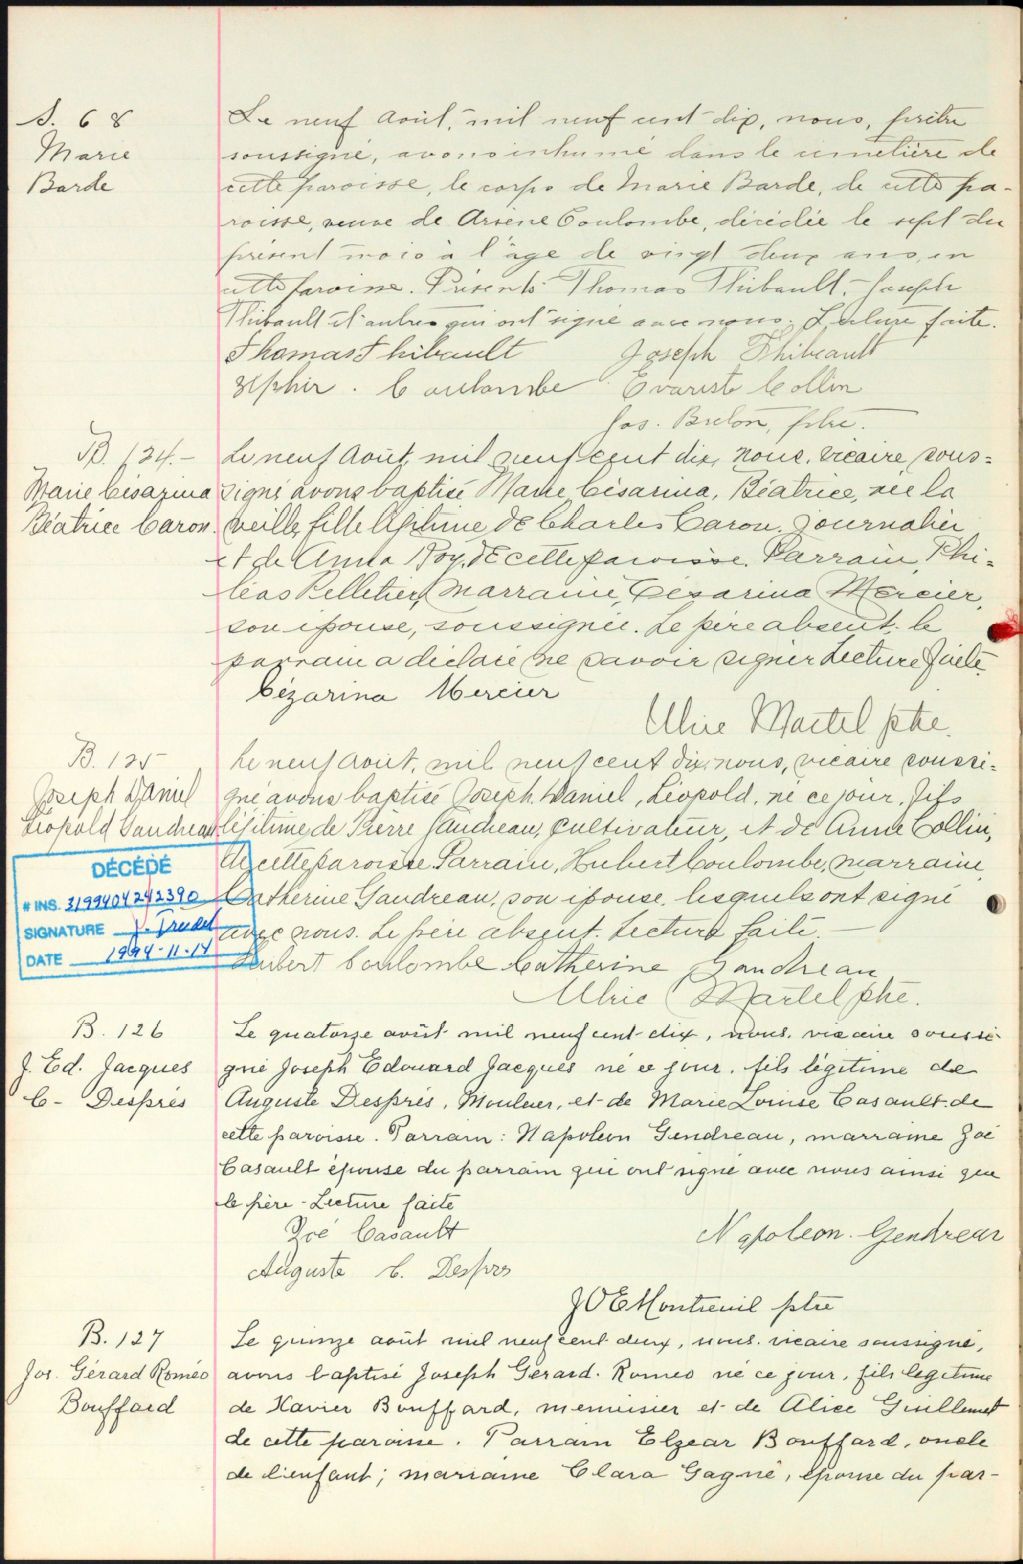 S. 68
Marie
Barde
Le neuf Août, mil neuf cent dix, nous, prêtre
soussigné, avons inhumé dans le cimetière de
cette paroisse, le corps de Marie Barde, de cette pa-
roisse, veuve de Arsène Coulombe, décédée le sept du
présent mois à l'âge de vingt deux ans, en
cette paroisse. Présents Thomas Thibault, Joseph
Thibault et autres qui ont signé avec nous. Lecture faite.
Thomas Thibault Joseph Thibeault
Coulombe Evariste Collin
Jos. Breton, ptre.
B. 124.-
Marie Césarina
Béatrice Caron.
Le neuf Août, mil neuf cent dix, nous, vicaire sous=
signé avons baptisé Marie Césarina, Béatrice, née la
veille, fille légitime de Charles Caron, journalier
et de Anna Roy, de cette paroisse. Parrain, Phi=
léas Pelletier, marraine, Césarina Mercier,
son épouse, soussignée. Le père absent. le
parrain a déclaré ne savoir signer Lecture faite.
Cézarina Mercier
Ulric Martel ptre.
B. 125
Joseph Daniel
Léopold Gaudreau
Le neuf Août, mil neuf cent dix, nous, vicaire soussi=
gné avons baptisé Joseph Daniel, Léopold, né ce jour, fils
légitime de Pierre Gaudreau, cultivateur, et de Anne Collin,
de cette paroisse. Parrain, Hubert Coulombe, marraine,
Catherine Gaudreau, son épouse, lesquels ont signé
avec nous. Le père absent. Lecture faite.
Hubert Coulombe Catherine Gaudreau
Ulric Martel ptre.
DÉCÉDÉ
# INS. 3199404242390
SIGNATURE J. Trudel
DATE 1994-11-14
B. 126
J. Ed. Jacques
C- Després
Le quatorze août mil neuf cent dix, nous, vicaire soussi-
gné Joseph Edouard Jacques né ce jour, fils légitime de
Auguste Després, Mouleur, et de Marie Louise Casault de
cette paroisse. Parrain: Napoleon Gendreau, marraine Zoé
Casault épouse du parrain qui ont signé avec nous ainsi que
le père - Lecture faite
Zoé Casault Napoleon Gendreau
Auguste C. Després
JOE Montreuil ptre
B. 127
Jos. Gérard Roméo
Bouffard
Le quinze août mil neuf cent deux, nous vicaire soussigné,
avons baptisé Joseph Gérard. Romeo né ce jour, fils legitime
de Xavier Bouffard, menuisier et de Alice Guillemet
de cette paroisse. Parrain Elzear Bouffard, oncle
de l'enfant; marraine Clara Gagné, épouse du par-